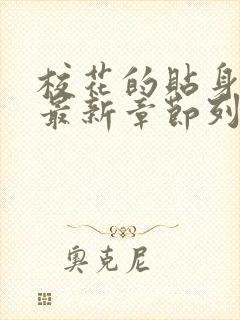 校花的貼身
最新章節列
奧克尼